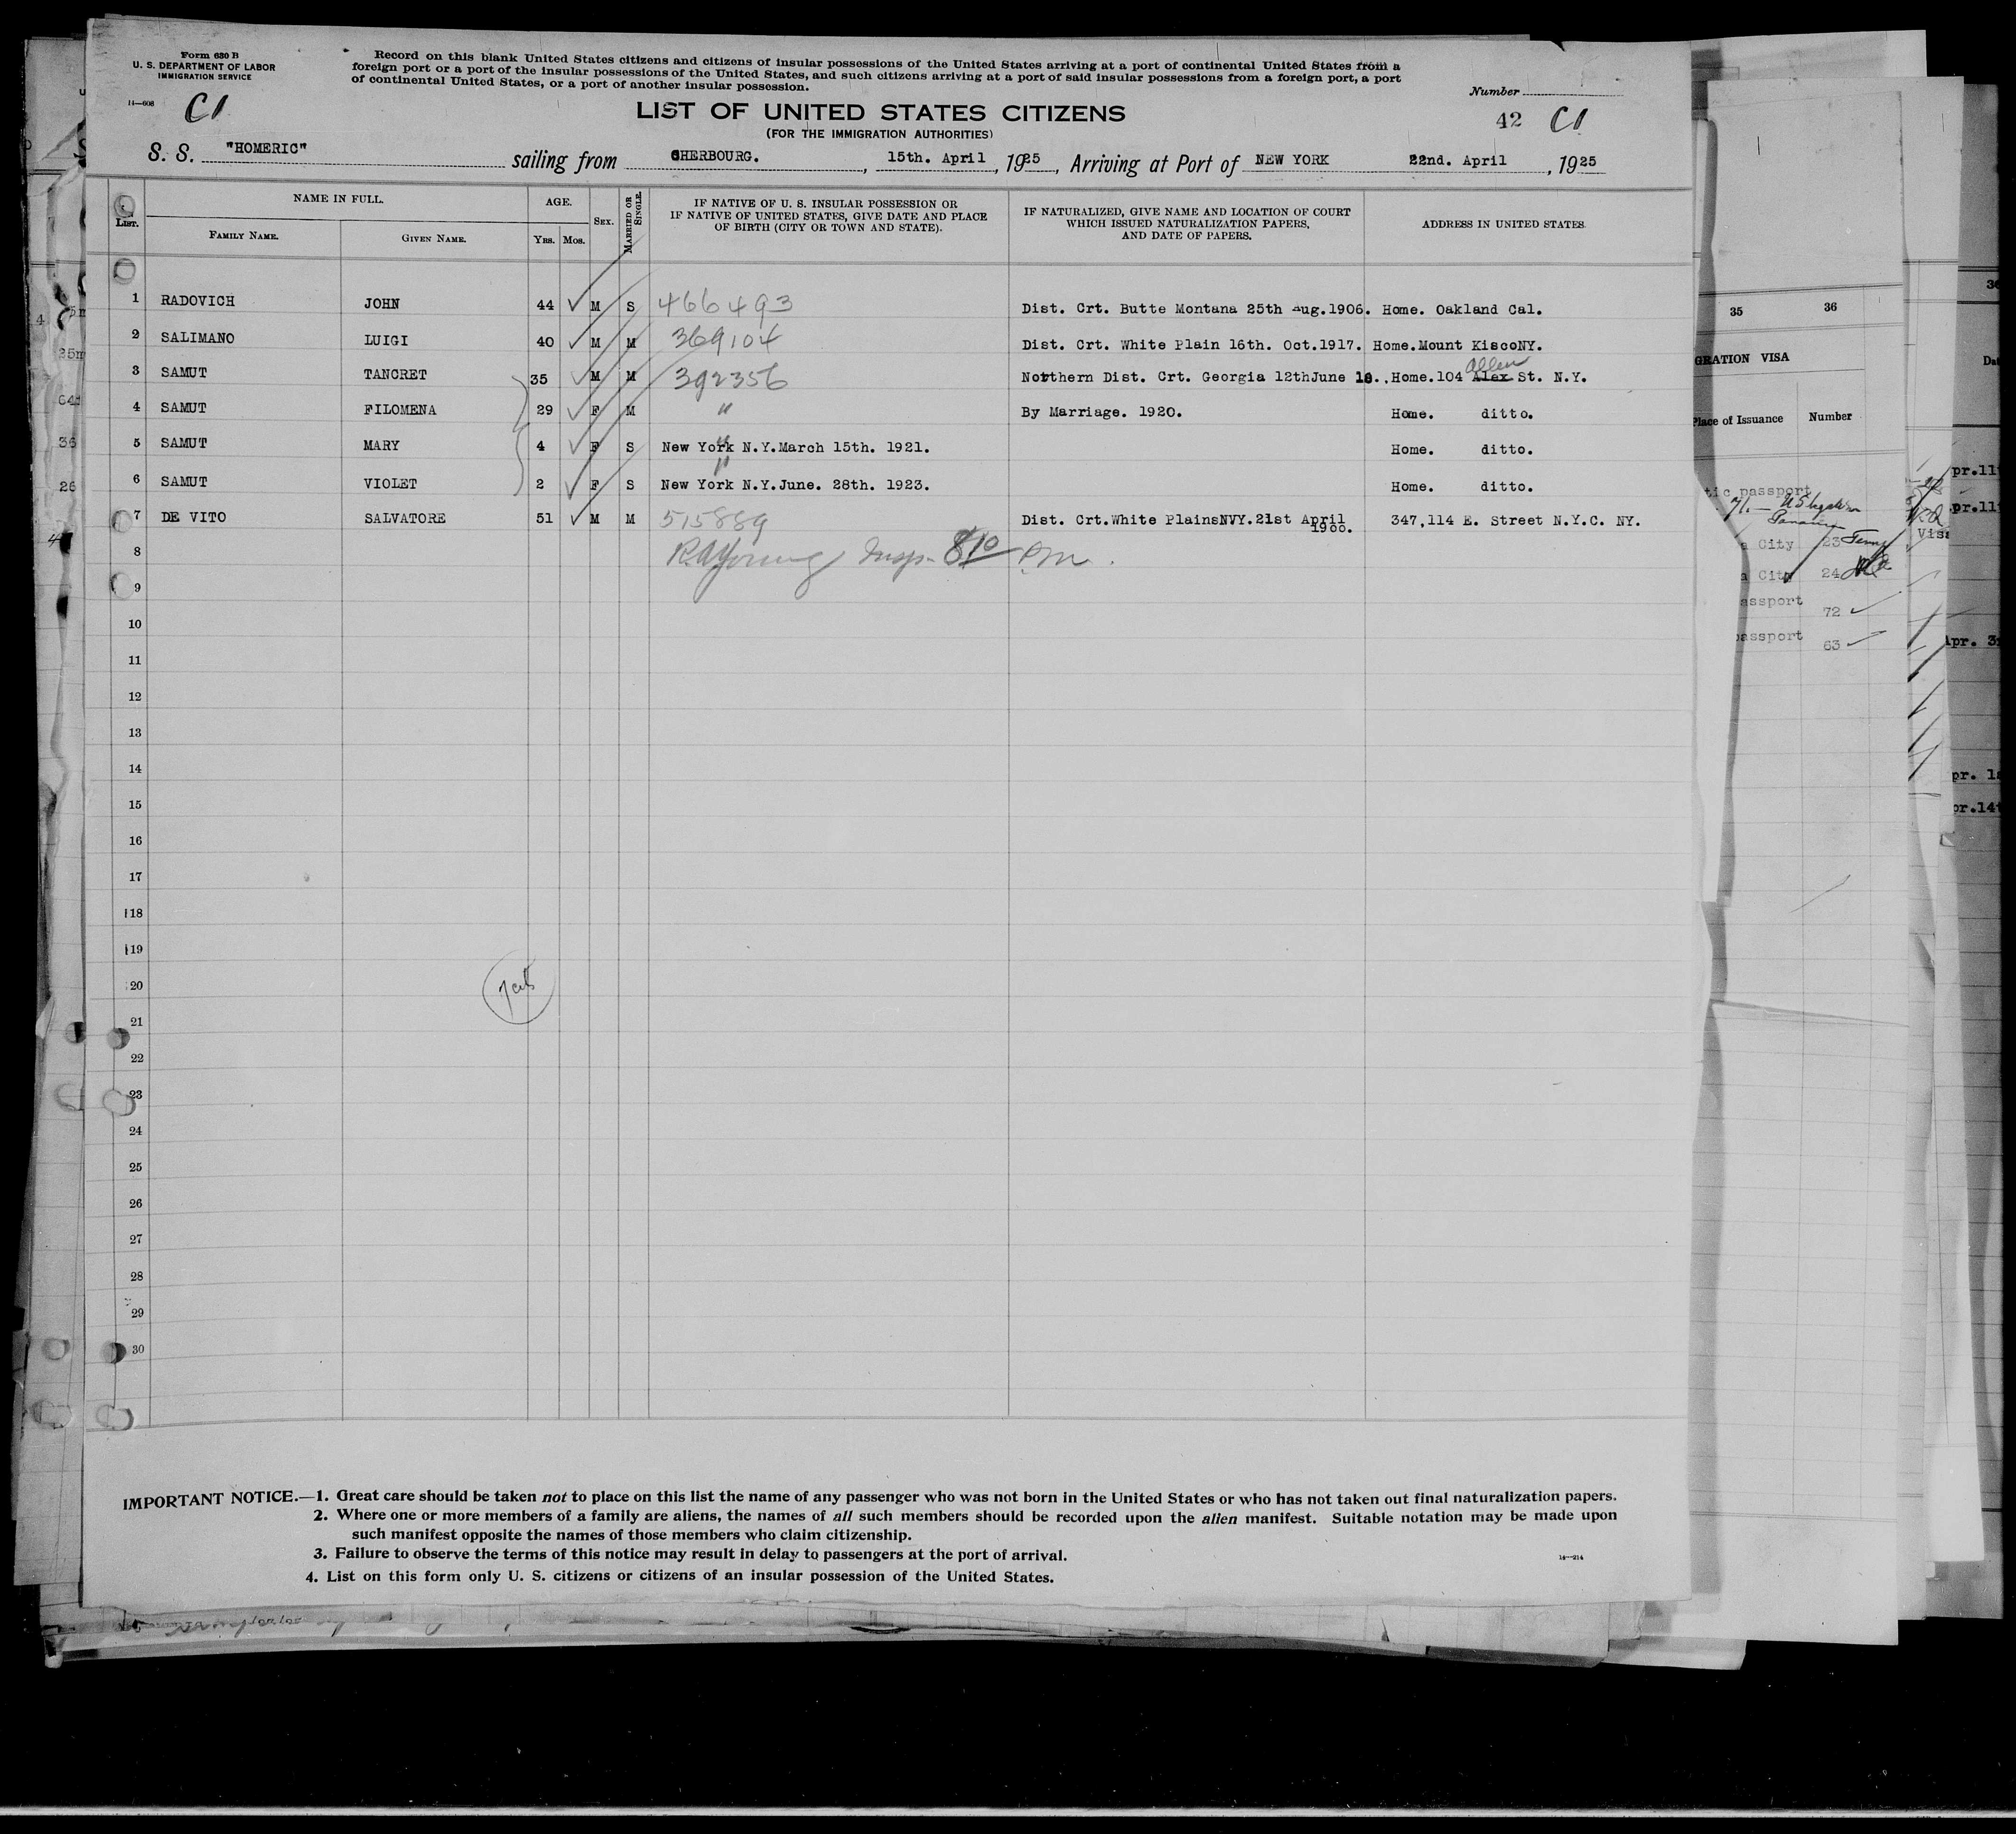 Form 630 B
U. S. DEPARTMENT OF LABOR
IMMIGRATION SERVICE
14—608
C1
Record on this blank United States citizens and citizens of insular possessions of the United States arriving at a port of continental United States from a
foreign port or a port of the insular possessions of the United States, and such citizens arriving at a port of said insular possessions from a foreign port, a port
of continental United States, or a port of another insular possession.
Number
LIST OF UNITED STATES CITIZENS
(FOR THE IMMIGRATION AUTHORITIES)
42 C1
S. S. "HOMERIC" sailing from CHERBOURG. , 15th. April , 1925 , Arriving at Port of NEW YORK 22nd. April , 1925
LIST. NAME IN FULL. AGE. SEX. MARRIED OR SINGLE. IF NATIVE OF U. S. INSULAR POSSESSION OR IF NATIVE OF UNITED STATES, GIVE DATE AND PLACE OF BIRTH (CITY OR TOWN AND STATE). IF NATURALIZED, GIVE NAME AND LOCATION OF COURT WHICH ISSUED NATURALIZATION PAPERS, AND DATE OF PAPERS. ADDRESS IN UNITED STATES.
FAMILY NAME. GIVEN NAME. YRS. MOS.
1 RADOVICH JOHN 44 M S 466493 Dist. Crt. Butte Montana 25th Aug.1906. Home. Oakland Cal.
2 SALIMANO LUIGI 40 M M 369104 Dist. Crt. White Plain 16th. Oct.1917. Home.Mount KiscoNY.
3 SAMUT TANCRET 35 M M 392356 Northern Dist. Crt. Georgia 12thJune 18., Home.104 Alex Allen St. N.Y.
4 SAMUT FILOMENA 29 F M " By Marriage. 1920. Home. ditto.
5 SAMUT MARY 4 F S New York N.Y.March 15th. 1921. " Home. ditto.
6 SAMUT VIOLET 2 F S New York N.Y.June. 28th. 1923. " Home. ditto.
7 DE VITO SALVATORE 51 M M 515889 Dist. Crt.White PlainsNVY.21st April 1900. 347,114 E. Street N.Y.C. NY.
8 R.A.Young Insp. 8 10 P.M.
9
10
11
12
13
14
15
16
17
18
19
20
21
22
23
24
25
26
27
28
29
30
IMPORTANT NOTICE.—1. Great care should be taken not to place on this list the name of any passenger who was not born in the United States or who has not taken out final naturalization papers.
2. Where one or more members of a family are aliens, the names of all such members should be recorded upon the alien manifest. Suitable notation may be made upon
such manifest opposite the names of those members who claim citizenship.
3. Failure to observe the terms of this notice may result in delay to passengers at the port of arrival.
14—214
4. List on this form only U. S. citizens or citizens of an insular possession of the United States.
35 36
GRATION VISA
Place of Issuance Number
tic passport
City 23
City 24
assport 72
passport 63